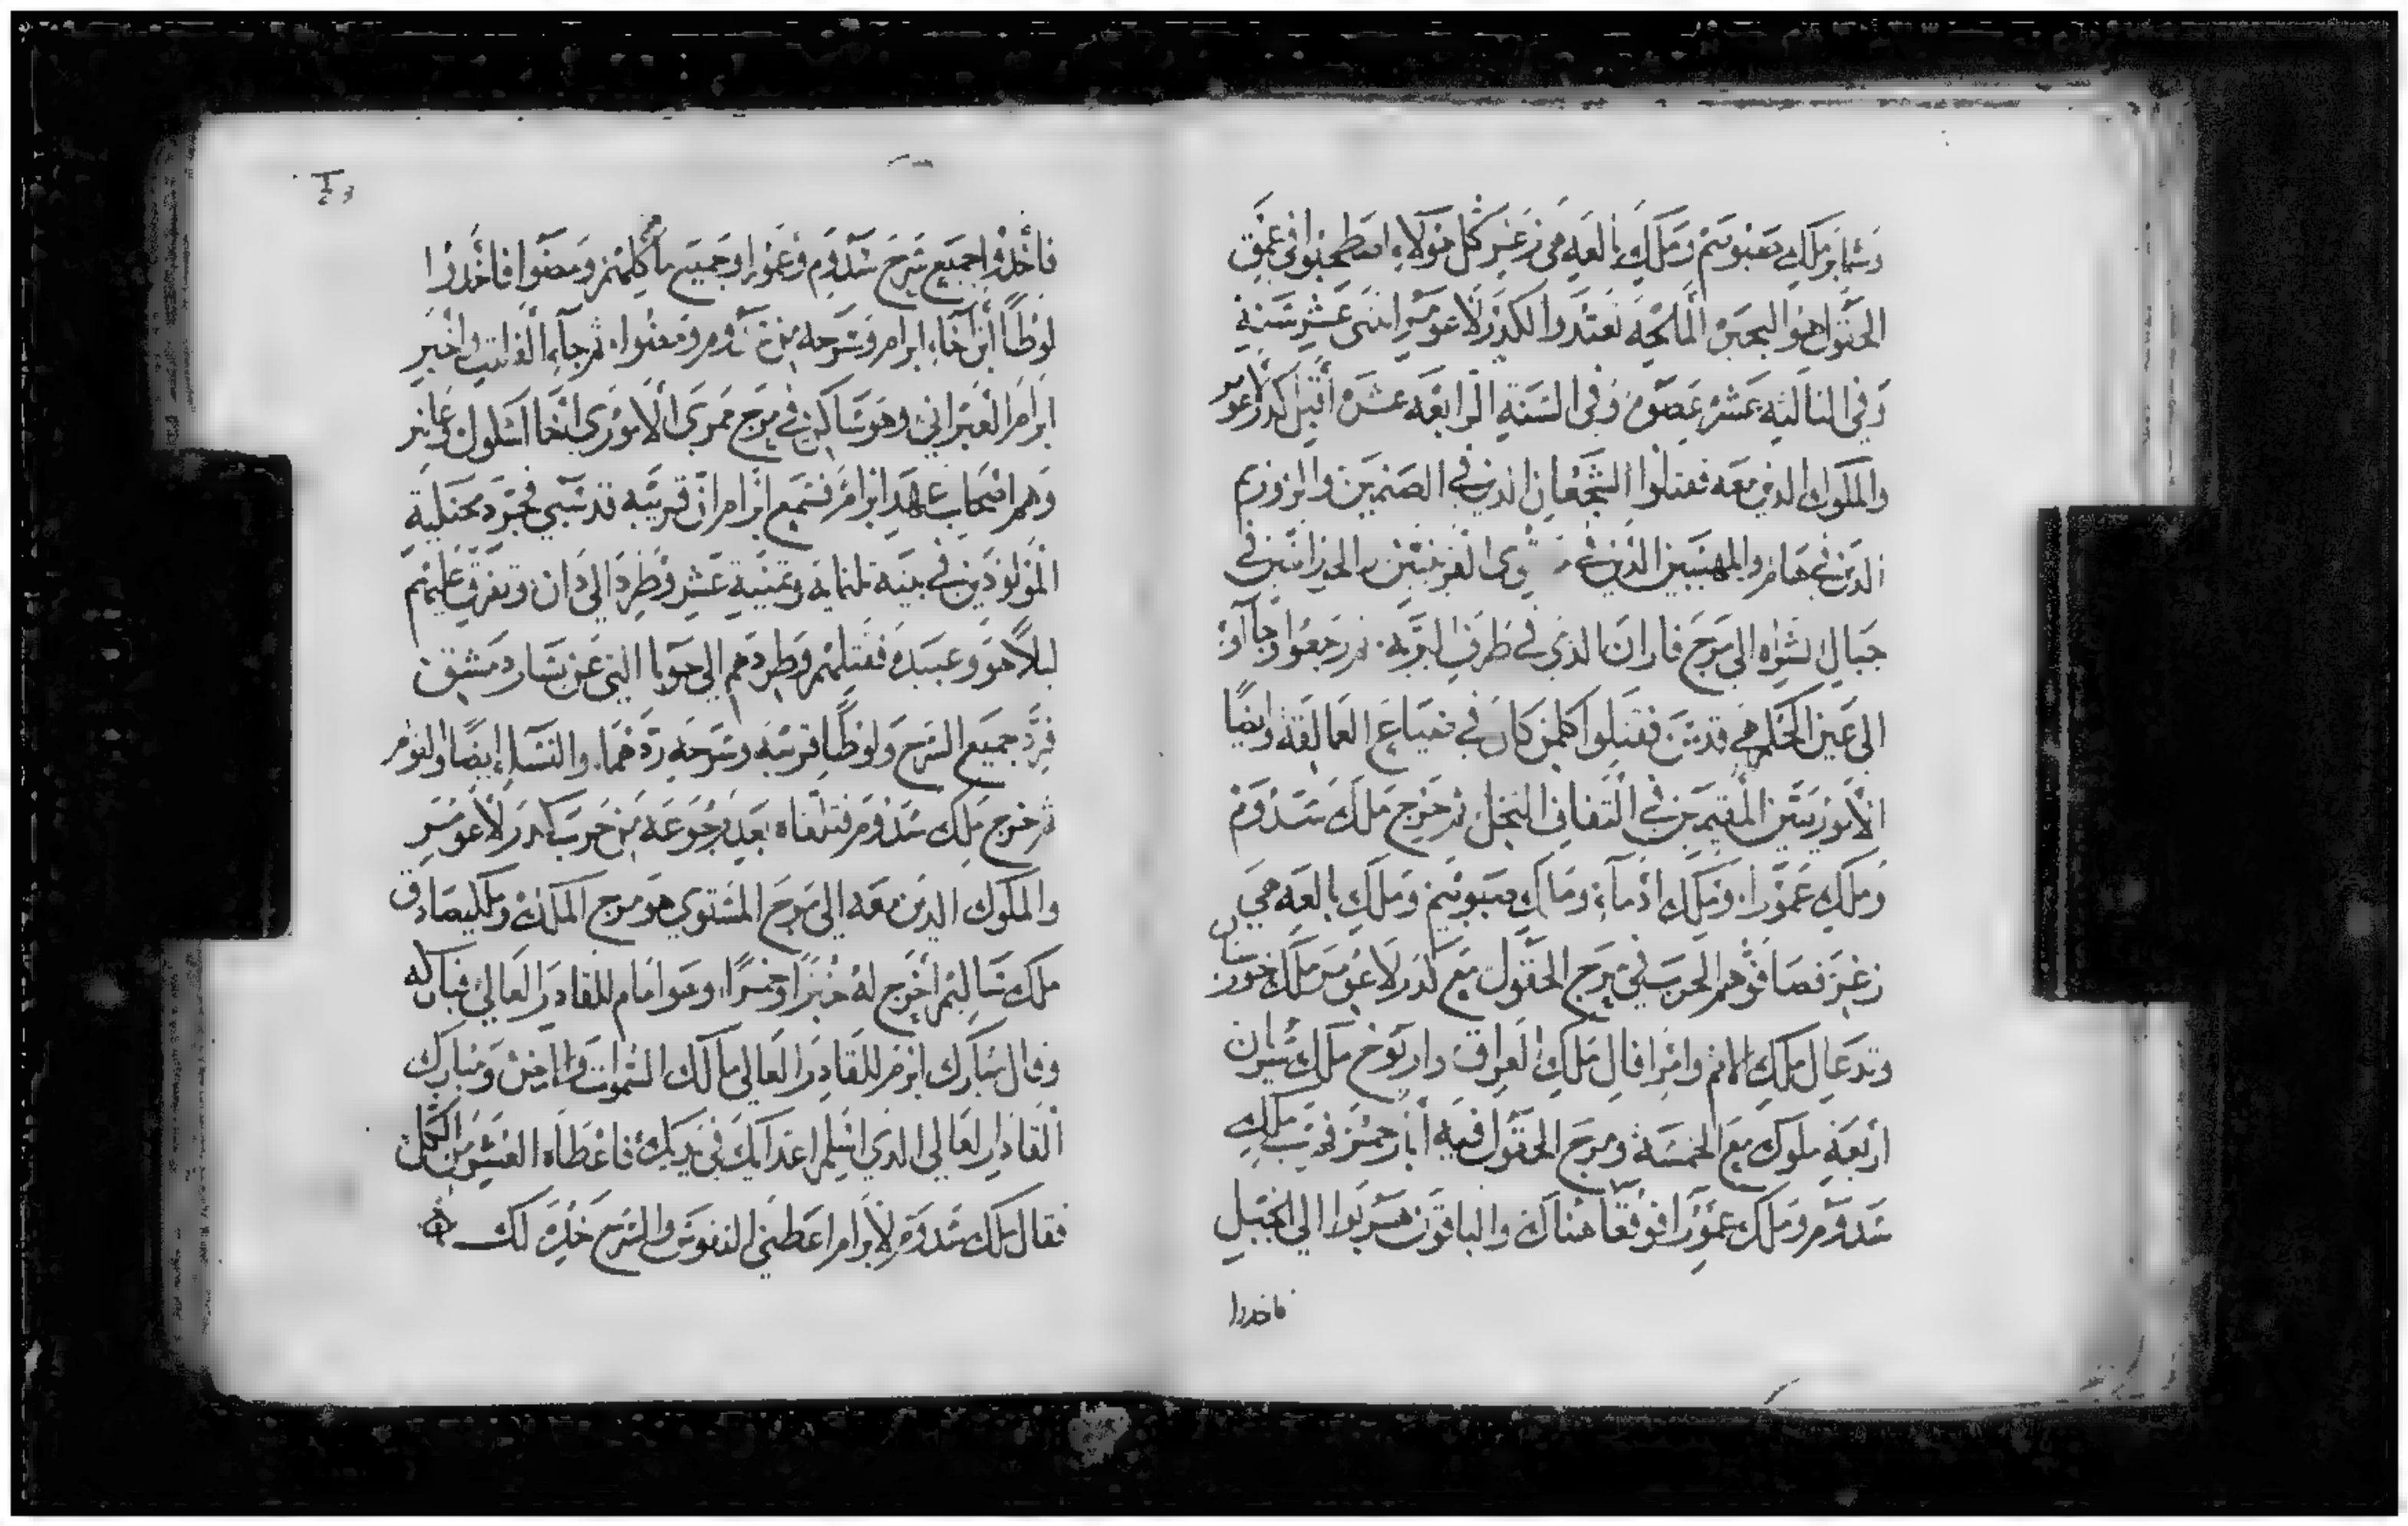 وشمابر ملك صبويم وملك بالعه هي زغر كل هولاء اصطحبوا في عمق
الحقول هو البحر المالحه تعبدوا لكدرلاعومر اثنى عشر سنة
وفي الثالثه عشر عصوه وفي السنة الرابعه عشره أقبل كدرلاعومر
والملوك الذين معه فقتلوا الشجعان الذين في الصنمين والزوزيم
الذين في هام والمهيبين الذين في القريتين والحورانيين في
جبال الشراه الى مرج فاران الذي في طرف البريه ثم رجعوا وجآاو
الى عين الحكم هي قدش فقتلوا كلمن كان في ضياع العمالقة وايضا
الأموريين المقيمين في التفاف النخل ثم خرج ملك سدوم
وملك عمورا وملك ادمآء وملك صبويم وملك بالعه هي
زغر فصافوهم الحرب في مرج الحقول مع كدرلاعومر ملك خوزستان
وتدعال ملك الامم وامرافال ملك العراق داريوخ ملك سيسان
أربعة ملوك مع الخمسة ومرج الحقول فيه أبار حمر فهرب ملك
سدوم وملك عمورا فوقعا هناك والباقون هربوا الى الجبل
فاخدوا
فأخدوا جميع سرح سدوم وعمورا وجميع مأكلهم ومضوا فاخدوا
لوطا ابن اخاء ابرام وسرحه من سدوم ومضوا ثم جآء الفالت واخبر
ابرام العبراني وهو ساكن في مرج ممرى الاموري اخا اشلول وعانر
وهم اصحاب عهد ابرام فسمع ابرام ان قريبه قد سبي فجرد محنكية
المولودين في بيته تلتماية وتمنية عشر وطرد الى دان وتفرق عليهم
ليلا هو وعبيده فقتلهم وطردهم الى حوبا التي عن يسار دمشق
فرد جميع السرح ولوطا قريبه وسرحه ردهما والنسآء ايضا والقوم
ثم خرج ملك سدوم فتلقاه بعد رجوعه من حرب كدرلاعومر
والملوك الدين معه الى مرج المستوي هو مرج الملك وملكيصادق
ملك ساليم أخرج له خبزا وخمرا وهو امام للقادر العالي فباركه
وقال مبارك ابرم للقادر العالي مالك السموات والارض ومبارك
القادر العالي الذي اسلم اعداك في يديك فاعطاه العشر من الكل
فقال ملك سدوم لأبرام اعطني النفوس والسرح خده لك